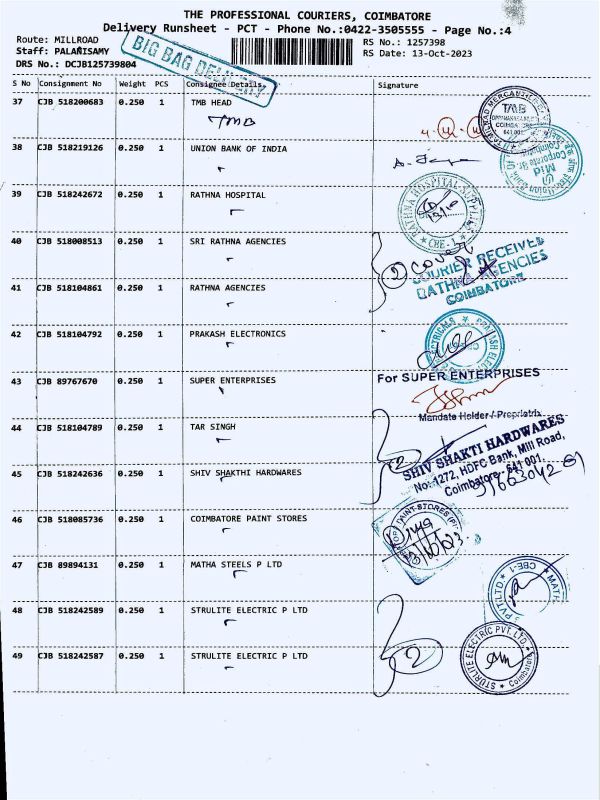 THE PROFESSIONAL COURIERS, COIMBATORE
Delivery Runsheet - PCT - Phone No.:0422-3505555 - Page No.:4
Route: MILLROAD
RS No.: 1257398
Staff: PALANISAMY
RS Date: 13-Oct-2023
DRS No.: DCJB125739804
BIG BAG DELIVERY
S No Consignment No Weight PCS Consignee Details Signature
37 CJB 518200683 0.250 1 TMB HEAD
TMB
38 CJB 518219126 0.250 1 UNION BANK OF INDIA
39 CJB 518242672 0.250 1 RATHNA HOSPITAL
RATHNA HOSPITAL SUPPLIES
CBE-1
40 CJB 518008513 0.250 1 SRI RATHNA AGENCIES
2 cover
COURIER RECEIVED
RATHNA AGENCIES
COIMBATORE
41 CJB 518104861 0.250 1 RATHNA AGENCIES
42 CJB 518104792 0.250 1 PRAKASH ELECTRONICS
43 CJB 89767670 0.250 1 SUPER ENTERPRISES
For SUPER ENTERPRISES
Mandate Holder / Proprietrix
44 CJB 518104789 0.250 1 TAR SINGH
2
SHIV SHAKTI HARDWARES
No: 1272, HDFC Bank, Mill Road,
Coimbatore- 641 001.
45 CJB 518242636 0.250 1 SHIV SHAKTHI HARDWARES
46 CJB 518085736 0.250 1 COIMBATORE PAINT STORES
47 CJB 89894131 0.250 1 MATHA STEELS P LTD
CBE-1
48 CJB 518242589 0.250 1 STRULITE ELECTRIC P LTD
49 CJB 518242587 0.250 1 STRULITE ELECTRIC P LTD
2
STURLITE ELECTRIC PVT. LTD.
Coimbatore